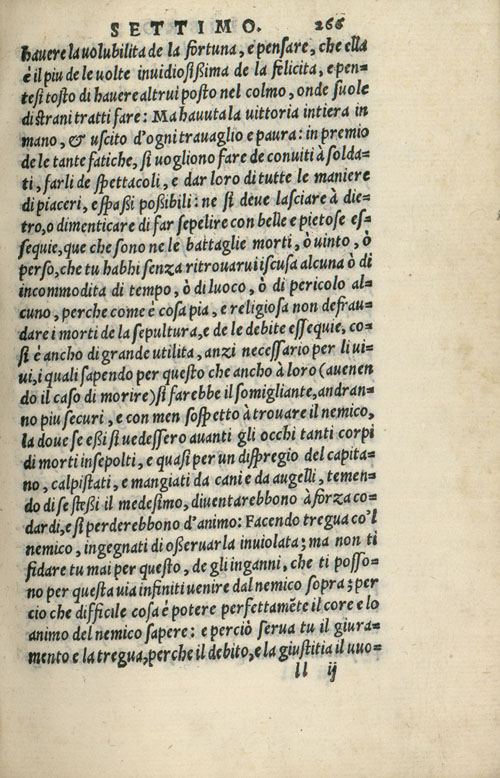 SETTIMO. 266
hauere la uolubilita de la fortuna, e pensare, che ella
é il piu de le uolte inuidiosissima de la felicita, e pen=
tesi tosto di hauere altrui posto nel colmo, onde suole
di strani tratti fare: Ma hauuta la uittoria intiera in
mano, & uscito d'ogni trauaglio e paura: in premio
de le tante fatiche, si uogliono fare de conuiti à solda=
ti, farli de spettacoli, e dar loro di tutte le maniere
di piaceri, e spassi possibili: ne si deue lasciare à die=
tro, o dimenticare di far sepelire con belle e pietose es=
sequie, que che sono ne le battaglie morti, ò uinto, ò
perso, che tu habbi senza ritrouarui iscusa alcuna ò di
incommodita di tempo, ò di luoco, ò di pericolo al=
cuno, perche come é cosa pia, e religiosa non defrau=
dare i morti de la sepultura, e de le debite essequie, co=
si é ancho di grande utilita, anzi necessario per li ui=
ui, i quali sapendo per questo che ancho à loro (auenen
do il caso di morire) si farebbe il somigliante, andran=
no piu securi, e con men sospetto à trouare il nemico,
la doue se essi si uedessero auanti gli occhi tanti corpi
di morti insepolti, e quasi per un dispregio del capita=
no, calpistati, e mangiati da cani e da augelli, temen=
do di se stessi il medesimo, diuentarebbono à forza co=
dardi, e si perderebbono d'animo: Facendo tregua co'l
nemico, ingegnati di osseruarla inuiolata; ma non ti
fidare tu mai per questo, de gli inganni, che ti posso=
no per questa uia infiniti uenire dal nemico sopra; per
cio che difficile cosa é potere perfettamẽte il core e lo
animo del nemico sapere: e perciò serua tu il giura=
mento e la tregua, perche il debito, e la giustitia il uuo=
ll ij